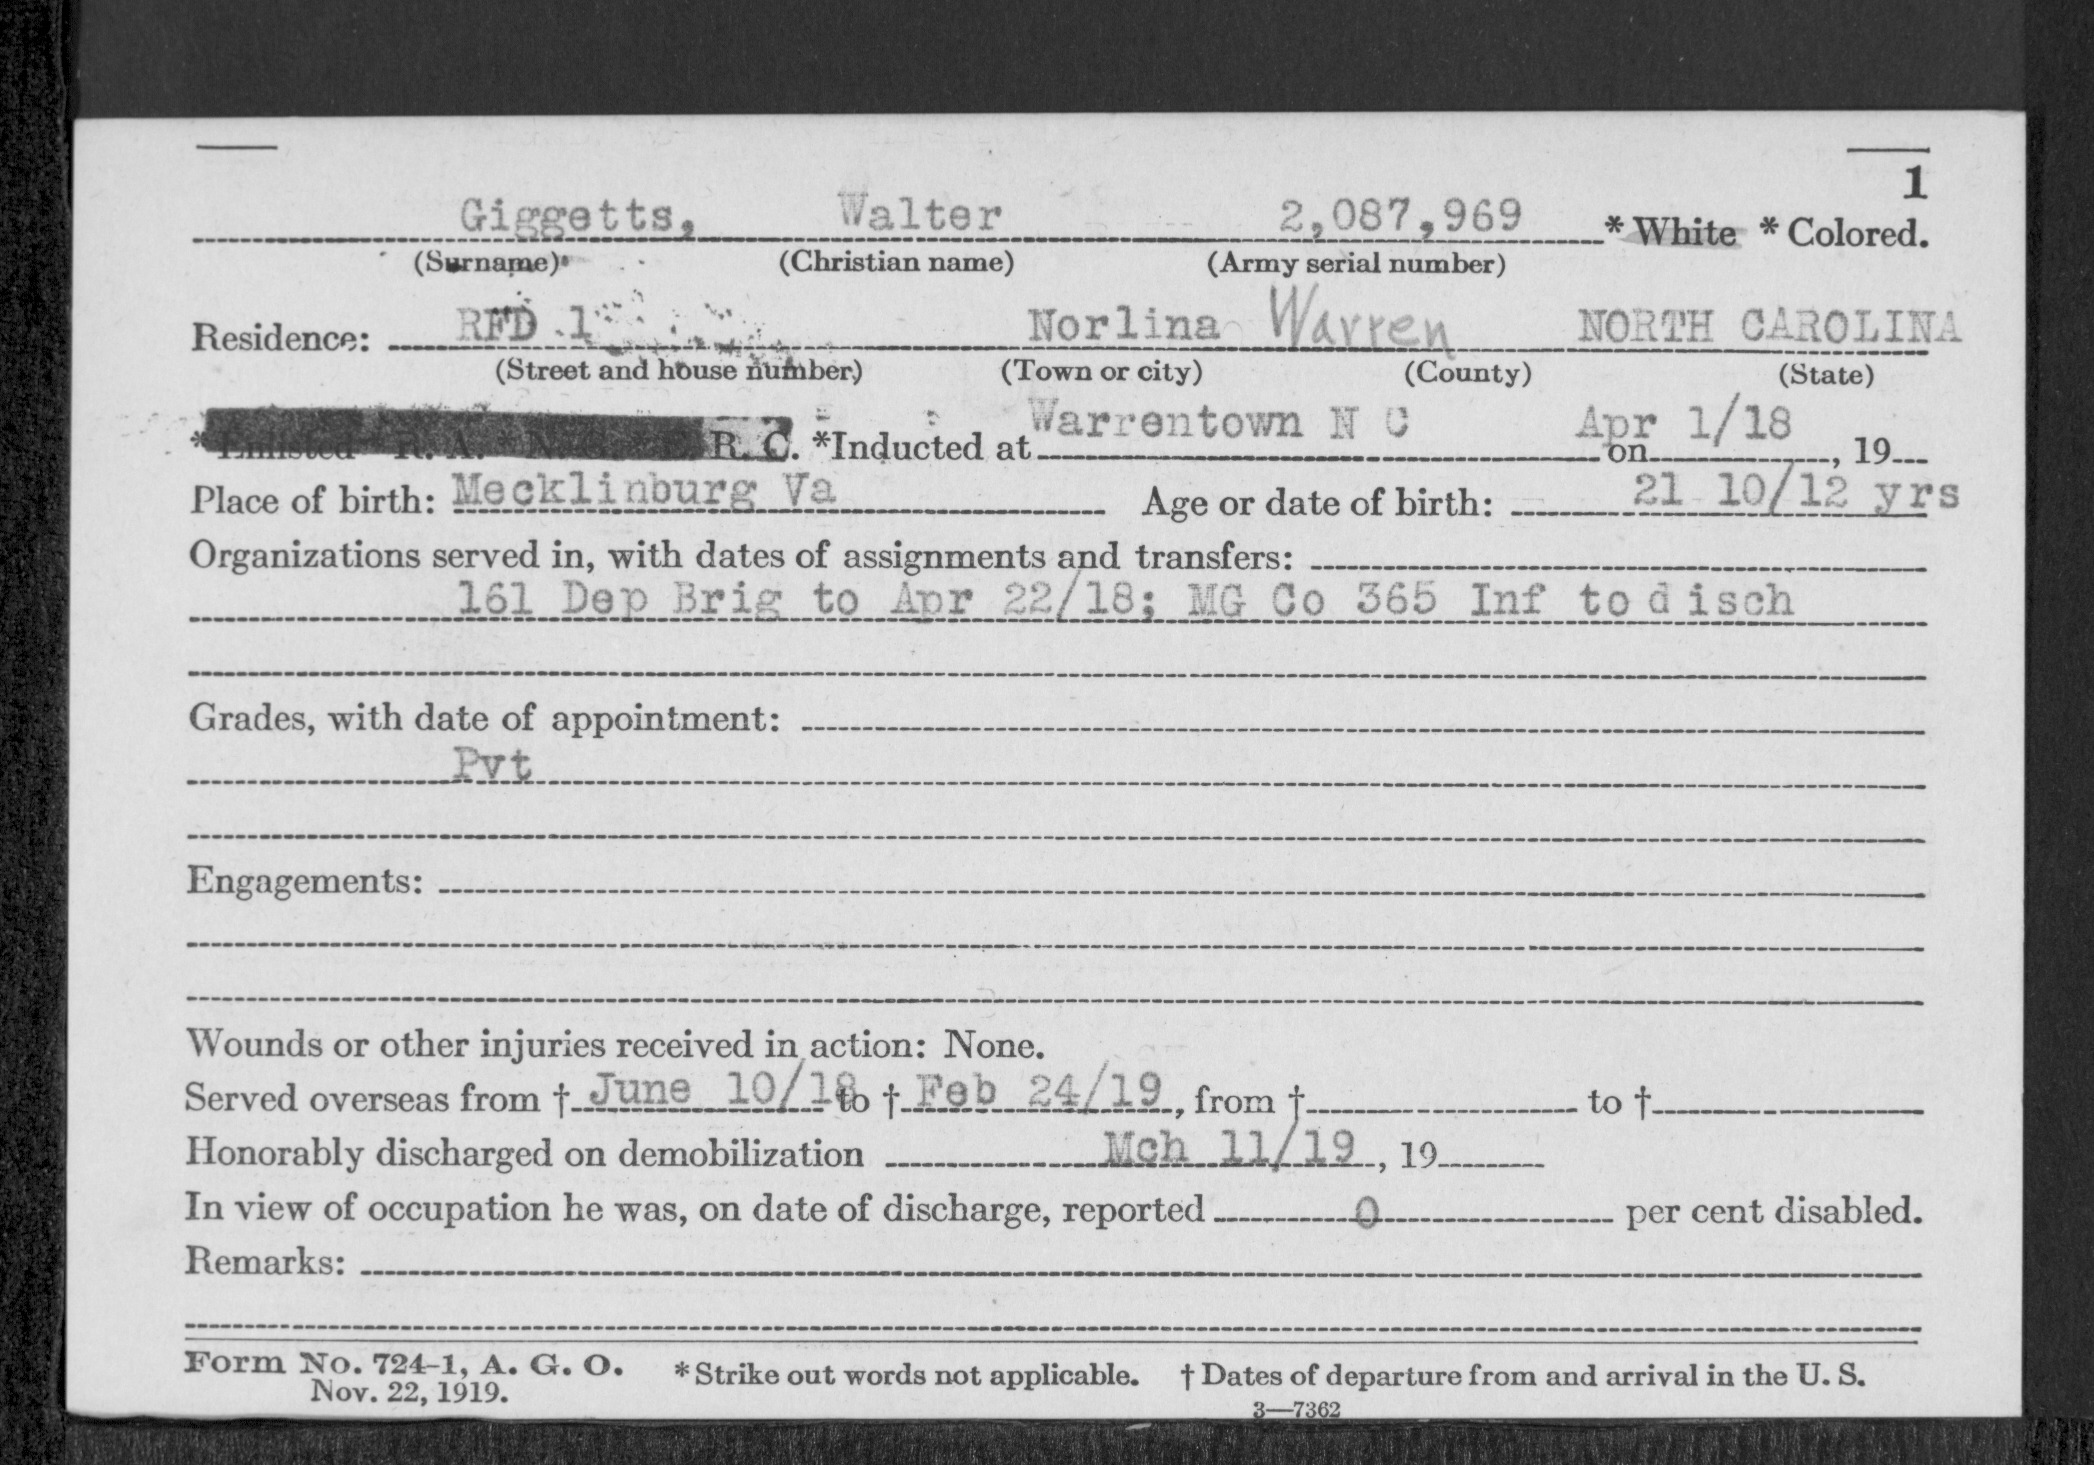 1
Giggetts, Walter 2,087,969 * White * Colored.
(Surname) (Christian name) (Army serial number)
Residence: RFD 1 Norlina Warren NORTH CAROLINA
(Street and house number) (Town or city) (County) (State)
* Enlisted R. A. N. G. E. R. C. *Inducted at Warrentown N C on Apr 1/18, 19
Place of birth: Mecklinburg Va Age or date of birth: 21 10/12 yrs
Organizations served in, with dates of assignments and transfers:
161 Dep Brig to Apr 22/18; MG Co 365 Inf to disch
Grades, with date of appointment:
Pvt
Engagements:
Wounds or other injuries received in action: None.
Served overseas from † June 10/18 to † Feb 24/19, from † to †
Honorably discharged on demobilization Mch 11/19, 19
In view of occupation he was, on date of discharge, reported 0 per cent disabled.
Remarks:
Form No. 724-1, A. G. O. * Strike out words not applicable. † Dates of departure from and arrival in the U. S.
Nov. 22, 1919.
3—7362